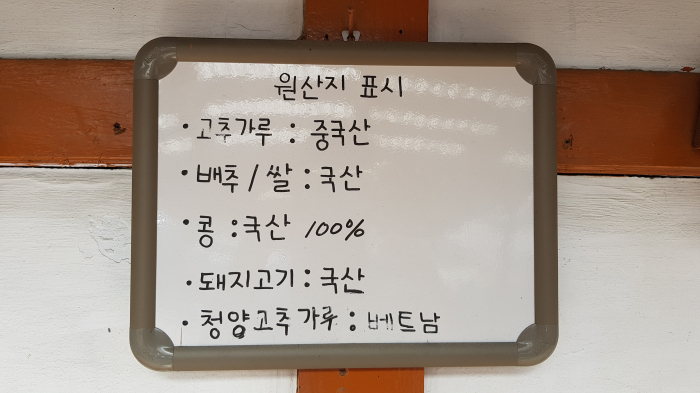 원산지 표시
· 고추가루 : 중국산
· 배추 / 쌀 : 국산
· 콩 : 국산 100%
· 돼지고기 : 국산
· 청양고추가루 : 베트남